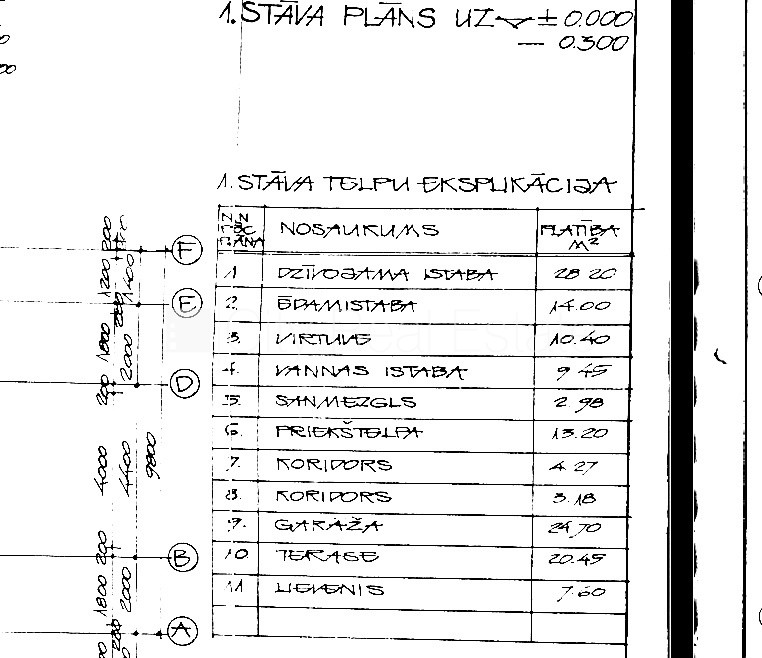 1. STĀVA PLĀNS UZ ± 0.000
— 0.300
1. STĀVA TELPU EKSPLIKĀCIJA
NOSAUKUMS PLATĪBA M²
1 DZĪVOJAMA ISTABA 28.20
2. ĒDAMISTABA 14.00
3. VIRTUVE 10.40
4. VANNAS ISTABA 9.45
5. SANMEZGLS 2.98
6. PRIEKŠTELPA 13.20
7. KORIDORS 4.27
8. KORIDORS 3.18
9. GARĀŽA 24.70
10 TERASE 20.45
11 LIEVENIS 7.60
F
E
D
B
A
200
1200
1400
1800
2000
200
4000
4400
9800
200
1800
2000